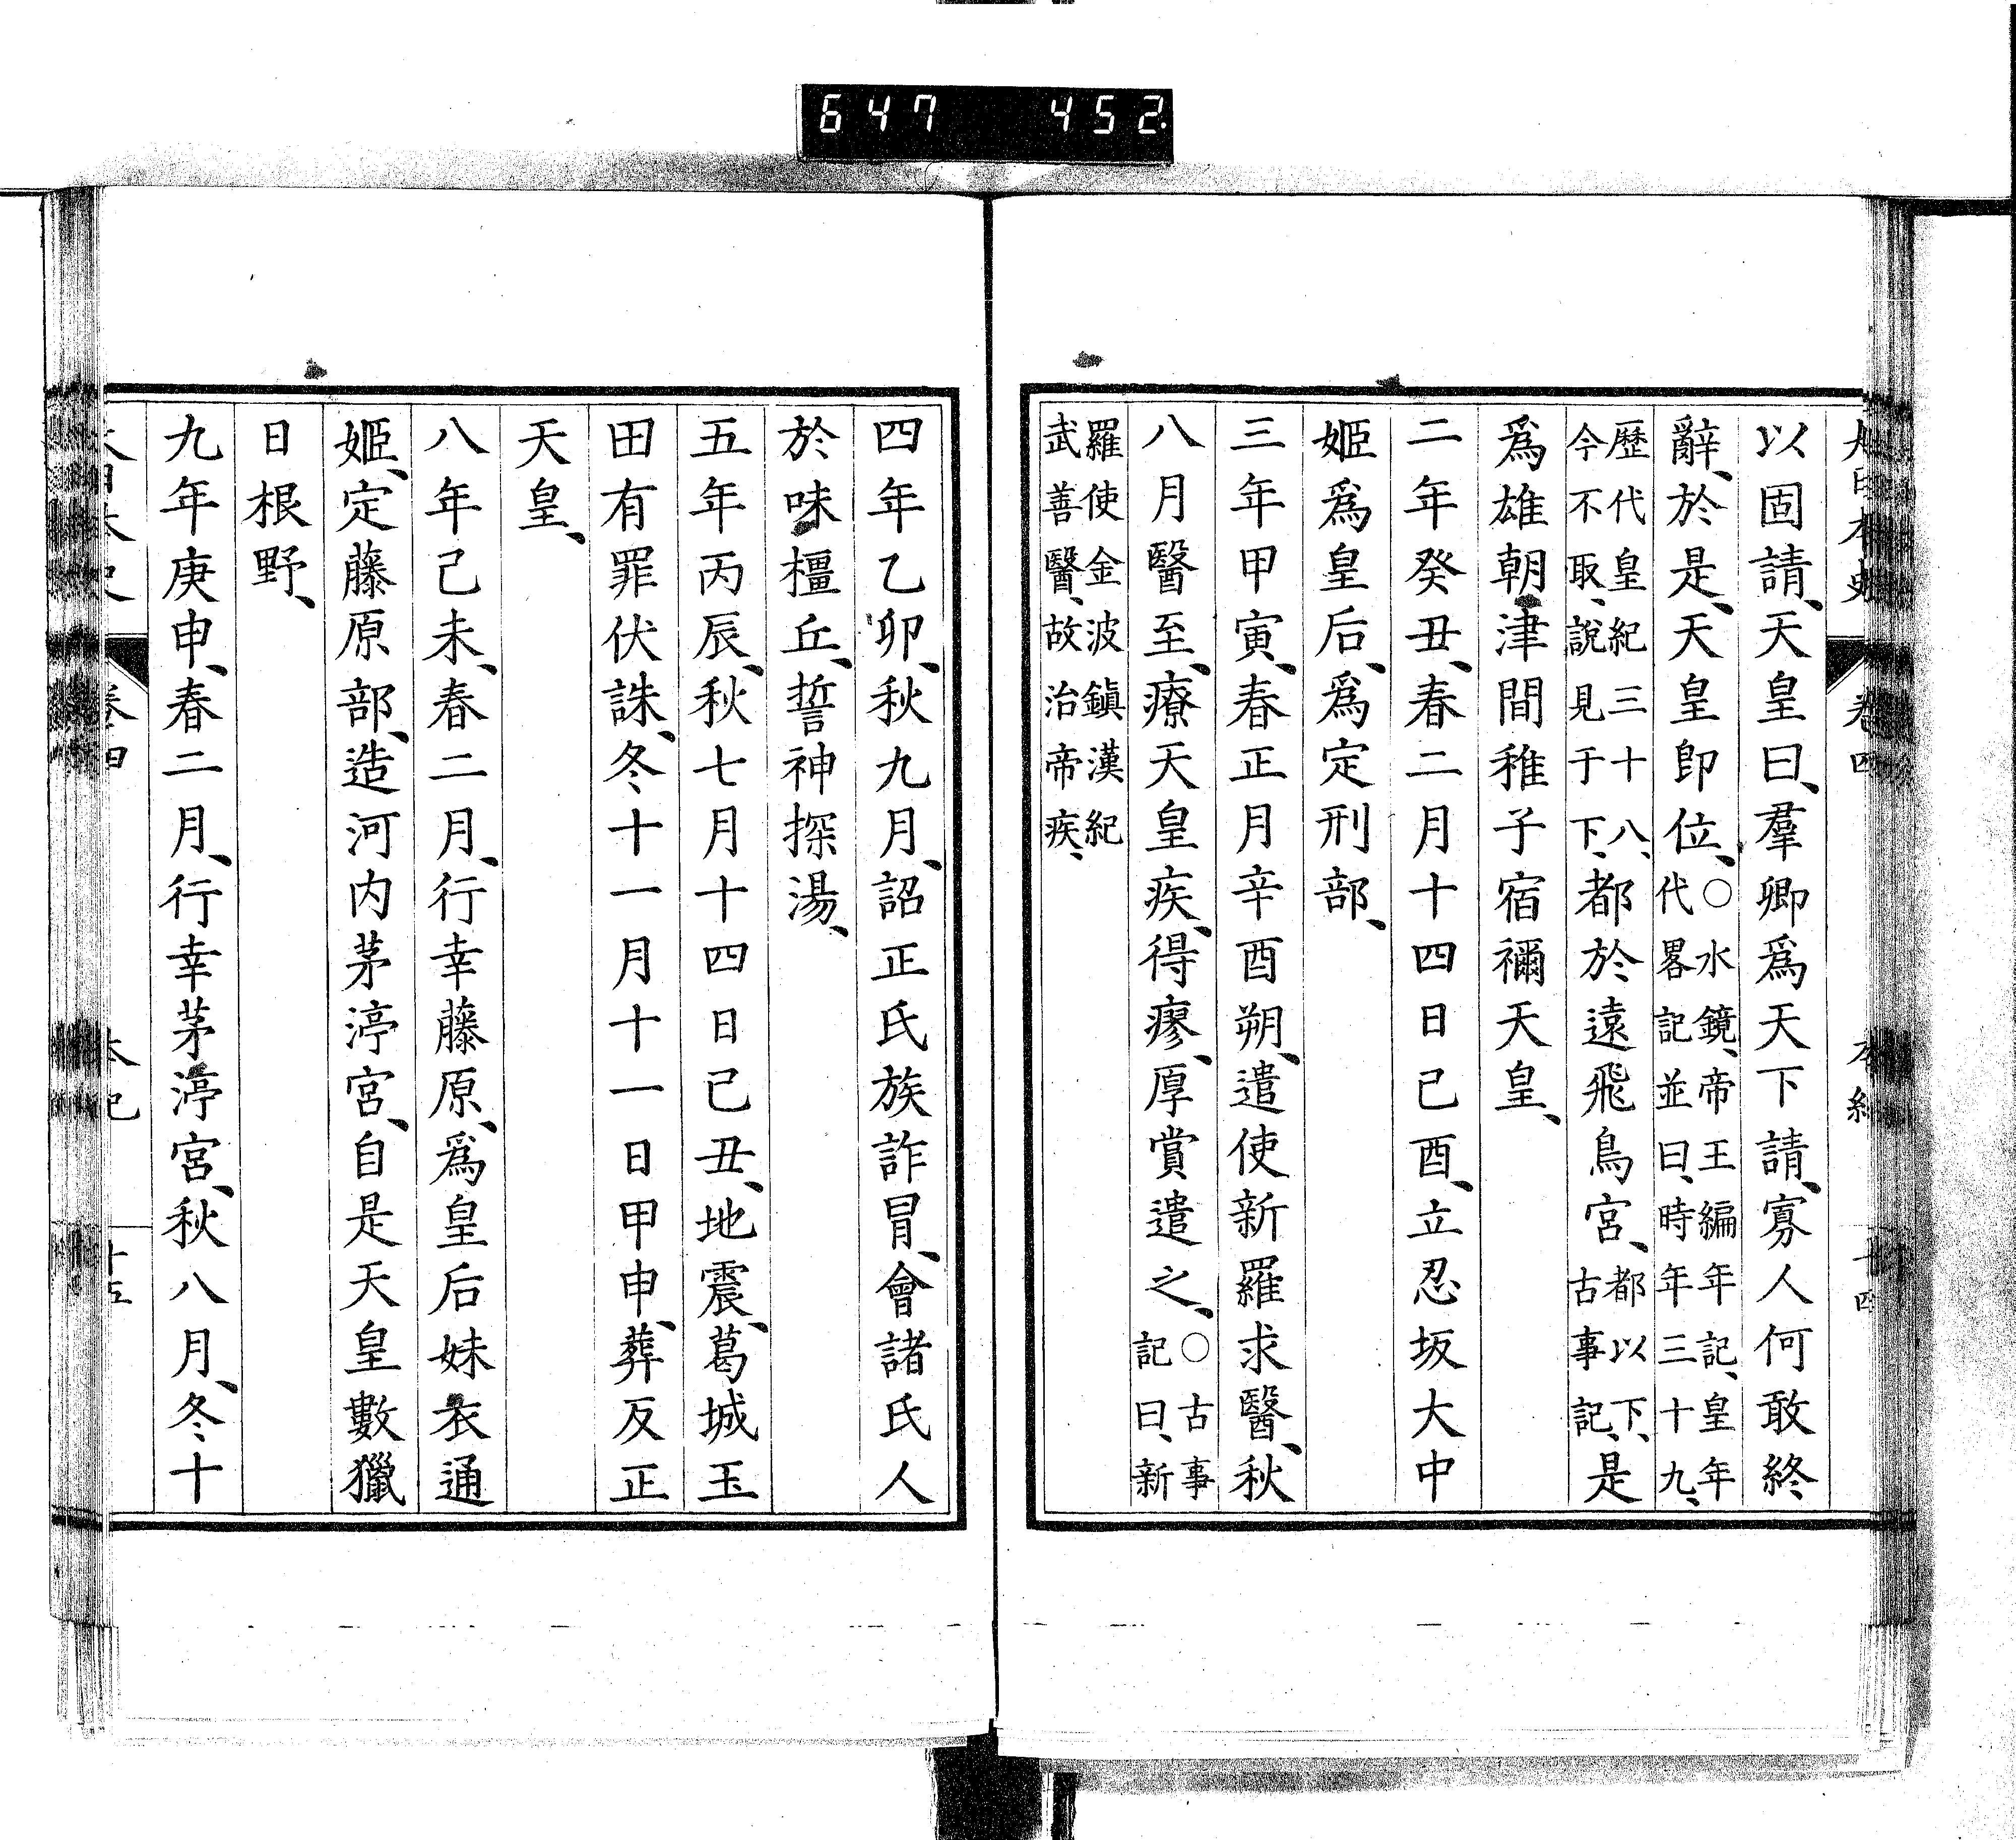 647 452
以固請、天皇曰、羣卿爲天下請、寡人何敢終
辭、於是、天皇卽位、○水鏡、帝王編年記、皇年代畧記並曰、時年三十九、
歷代皇紀三十八、今不取、說見于下、都於遠飛鳥宮、都以下、古事記、是
爲雄朝津間稚子宿禰天皇、
二年癸丑、春二月十四日己酉、立忍坂大中
姬爲皇后、爲定刑部、
三年甲寅、春正月辛酉朔、遣使新羅求醫、秋
八月醫至、療天皇疾、得瘳、厚賞遣之、○古事記曰、新
羅使金波鎭漢紀武善醫、故治帝疾、
四年乙卯、秋九月、詔正氏族詐冒、會諸氏人
於味橿丘、誓神探湯、
五年丙辰、秋七月十四日己丑、地震、葛城玉
田有罪伏誅、冬十一月十一日甲申、葬反正
天皇、
八年己未、春二月、行幸藤原、爲皇后妹衣通
姬、定藤原部、造河内茅渟宮、自是天皇數獵
日根野、
九年庚申、春二月、行幸茅渟宮、秋八月、冬十